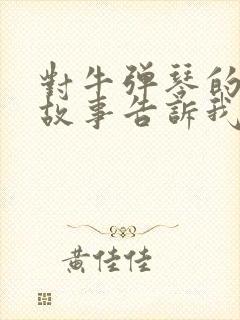 對牛弹琴的
故事告訴我
黄佳佳